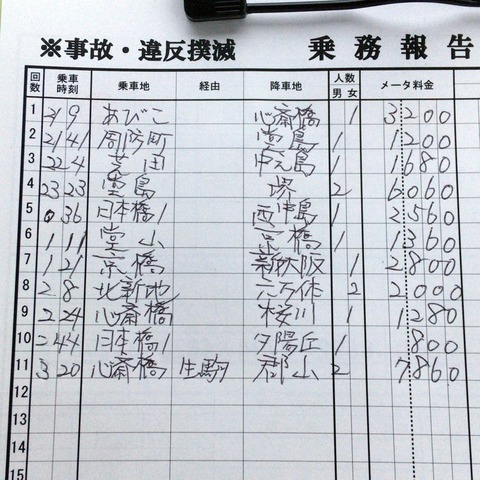 ※事故・違反撲滅 乗務報告
回数 乗車時刻 乗車地 経由 降車地 人数 男 女 メータ料金
1 21 9 あびこ 心斎橋 1 3200
2 21 41 周防町 堂島 1 1200
3 22 4 芝田 中之島 1 1680
4 23 23 堂島 堺 2 6060
5 0 36 日本橋1 西中島 1 2560
6 1 11 堂山 京橋 1 1360
7 1 21 京橋 新大阪 1 2800
8 2 8 北新地 六万体 2 2000
9 2 24 心斎橋 桜川 1 1280
10 2 44 日本橋1 夕陽丘 1 800
11 3 20 心斎橋 生駒 郡山 2 7860
12
13
14
15